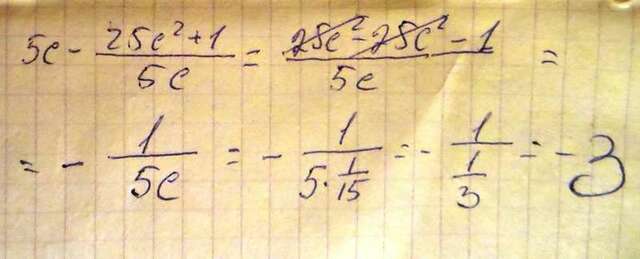 5c - \frac{25c^2+1}{5c} = \frac{25c^2-25c^2-1}{5c} =
= - \frac{1}{5c} = - \frac{1}{5 \cdot \frac{1}{15}} = - \frac{1}{\frac{1}{3}} = -3